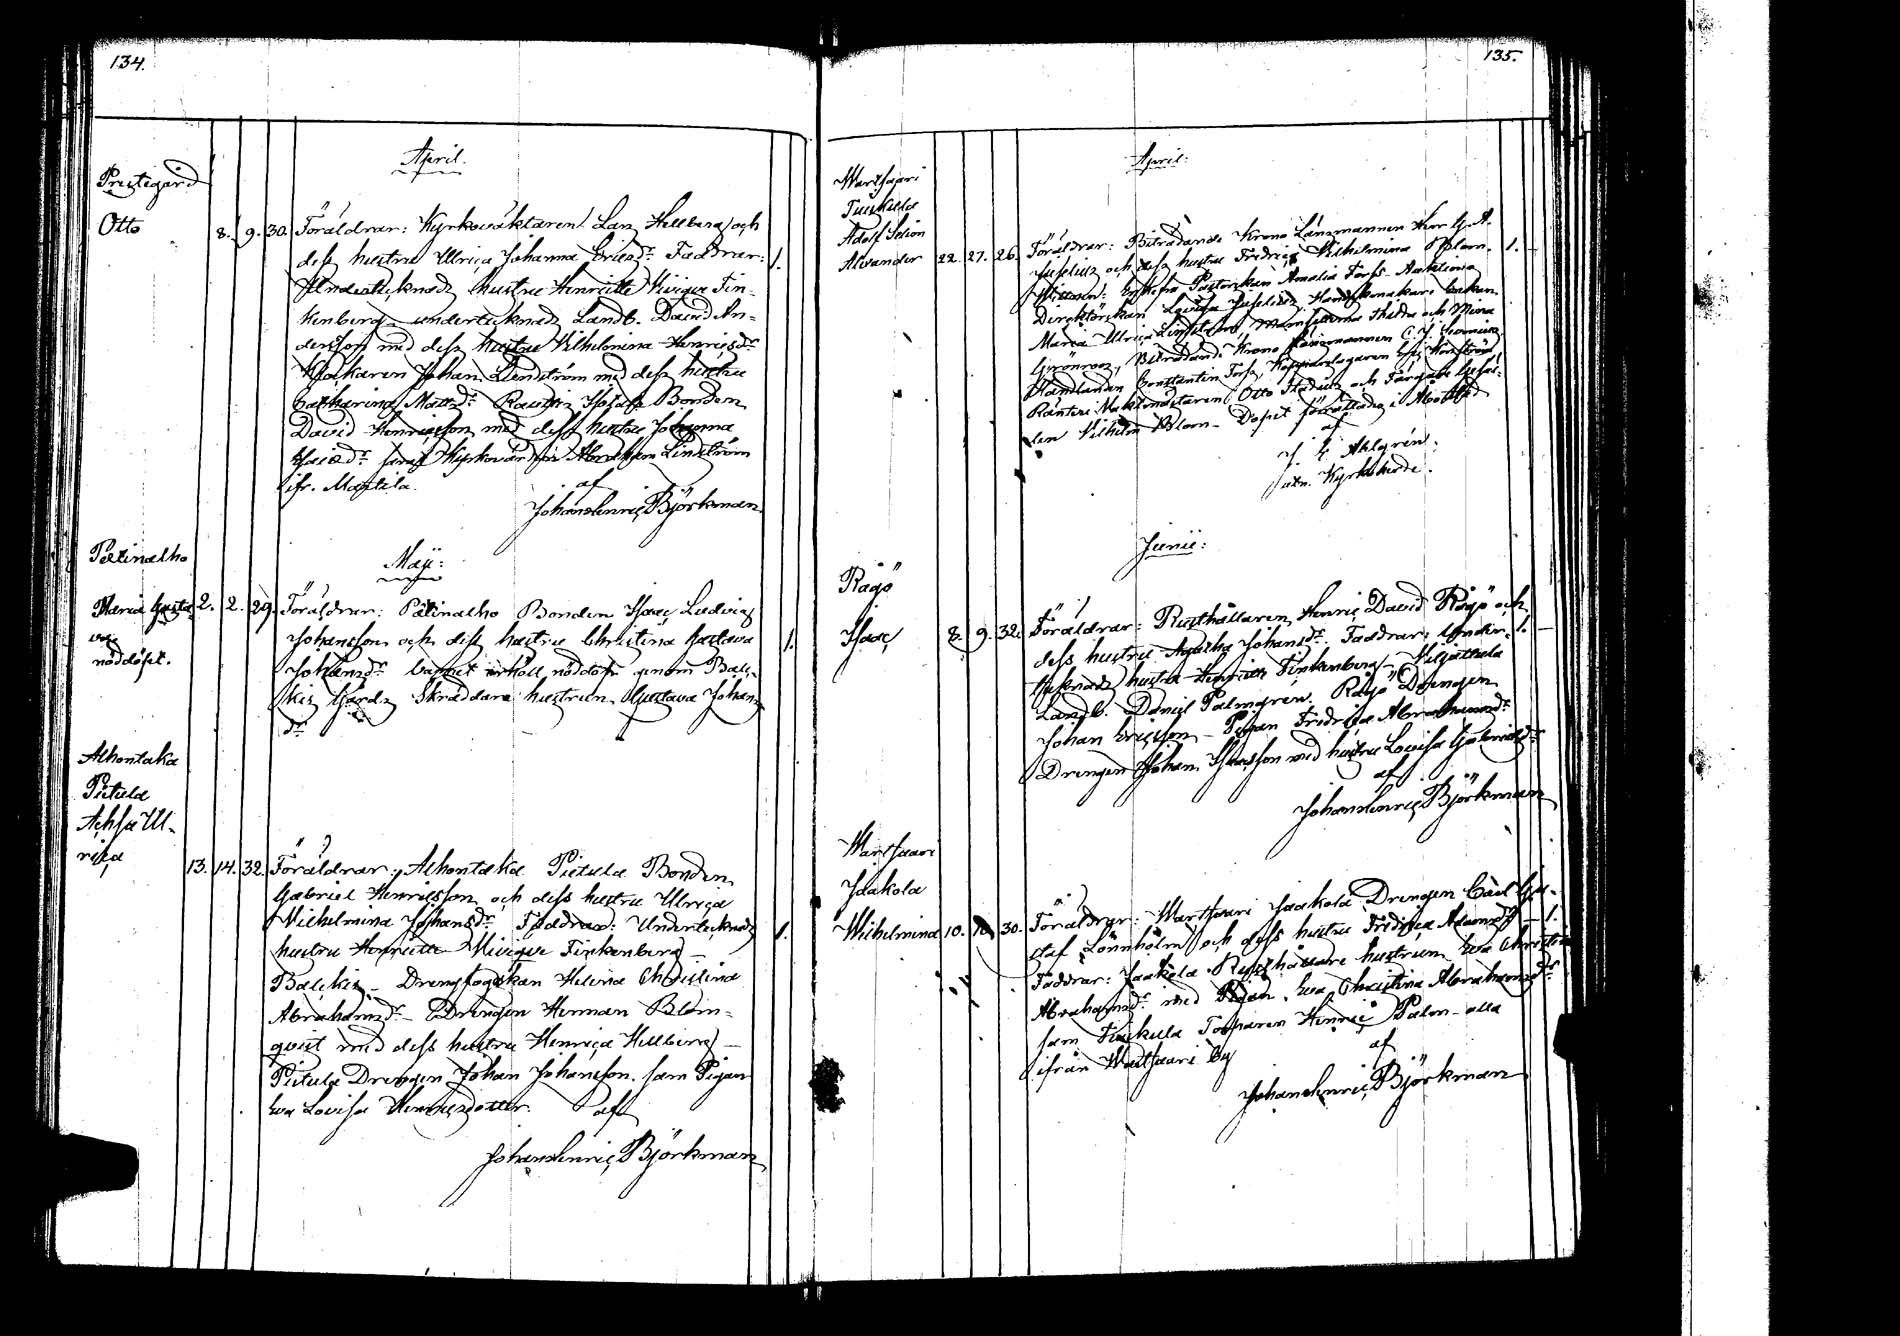 134.
April.
Prestegård
Otto 8. 9. 30. Föräldrar: Kyrkováktaren Lars Hellberg och
dess hustru Ulrica Johanna Ericsdr. Faddrar: 1.
Undertecknads hustru Henriette Vivique Fin-
kenberg undertecknads Landb. David An-
dersson med dess hustru Vilhelmina Henricsdr
Johan Lindström med dess hustru
Catharina Mattsdr. Bonden
David Henricsson med dess hustru Johanna
samt Kyrkovärden Abraham Lindström
ifr. Mattila.
af
Johan Henric Björkman
Maji:
Pätinalho
Maria Gusta- 2. 2. 29. Föräldrar: Pätinalho Bonden Isaac Ludvig
va Johansson och dess hustru Christina Gustava 1.
nöddöpt. Johansdr. barnet erhöll nöddop genom Balc-
kis Gårds Skräddare hustrun Gustava Johans
dr
Alhontaka
Pietula
Achsa Ul-
rica 13. 14. 32. Föräldrar: Alhontaka Pietula Bonden
Gabriel Henricsson och dess hustru Ulrica
Vilhelmina Johansdr. Faddrar: Undertecknads 1.
hustru Henriette Vivique Finkenberg –
Balckis – Drengfogdkan Helena Christina
Abrahamsdr – Drengen Herman Blom-
qvist med dess hustru Henrica Hellberg –
Pietula Drengen Johan Johansson. sam Pigan
Eva Lovisa Henricsdotter.
af
Johan Henric Björkman
135.
April:
Wartsaari
Tuiskula
Adolf Selion
Alexander 22. 27. 26. Föräldrar: Biträdande Krono Länsmannen Herr G. A.
Juselius och dess hustru Fredrica Vilhelmina Blom. 1. –
Pastorskan Amalia Forss
Direktörskan Lovisa Juselius, Handskmakare
Maria Ulrica Lindström, Mamsellerna Thilda och Mina
Grönroos, Biträdande Krono Länsmannen C. J.
Handlanden Constantin Forss, Kopparslagaren
Otto och Färgare Gesäl-
len Vilhelm Blom – Dopet förrättades i Åbo Stad
af
J E Ahlgrén.
utn. Kyrkoherde.
Junii:
Ragö
Isaac 8. 9. 32. Föräldrar: Rusthållaren Henric David Rägö och
dess hustru Agatha Johansdr. Faddrar: Under- 1. –
tecknads hustru Henriette Finkenberg – Viljattula
Landb. Daniel Palmgren. Rägö Drengen
Johan Ericsson – Pigan Fredrica Abrahamsdr
Drengen Johan Isacsson med hustru Lovisa Gabrielsdr
af
Johan Henric Björkman
Wartsaari
Jaakola
Wilhelmina 10. 10. 30. Föräldrar: Wartsaari Jaakola Drengen Carl Gu-
staf Lönnholm och dess hustru Fredrica Adamsdr – 1.
Faddrar: Jaakola Rusthållare hustrun Eva Christina
Abrahamsdr med Pigan Eva Christina Abrahamsdr
sam Tuiskula Torparen Henric Palm – alla
ifrån Wartsaari by
af
Johan Henric Björkman